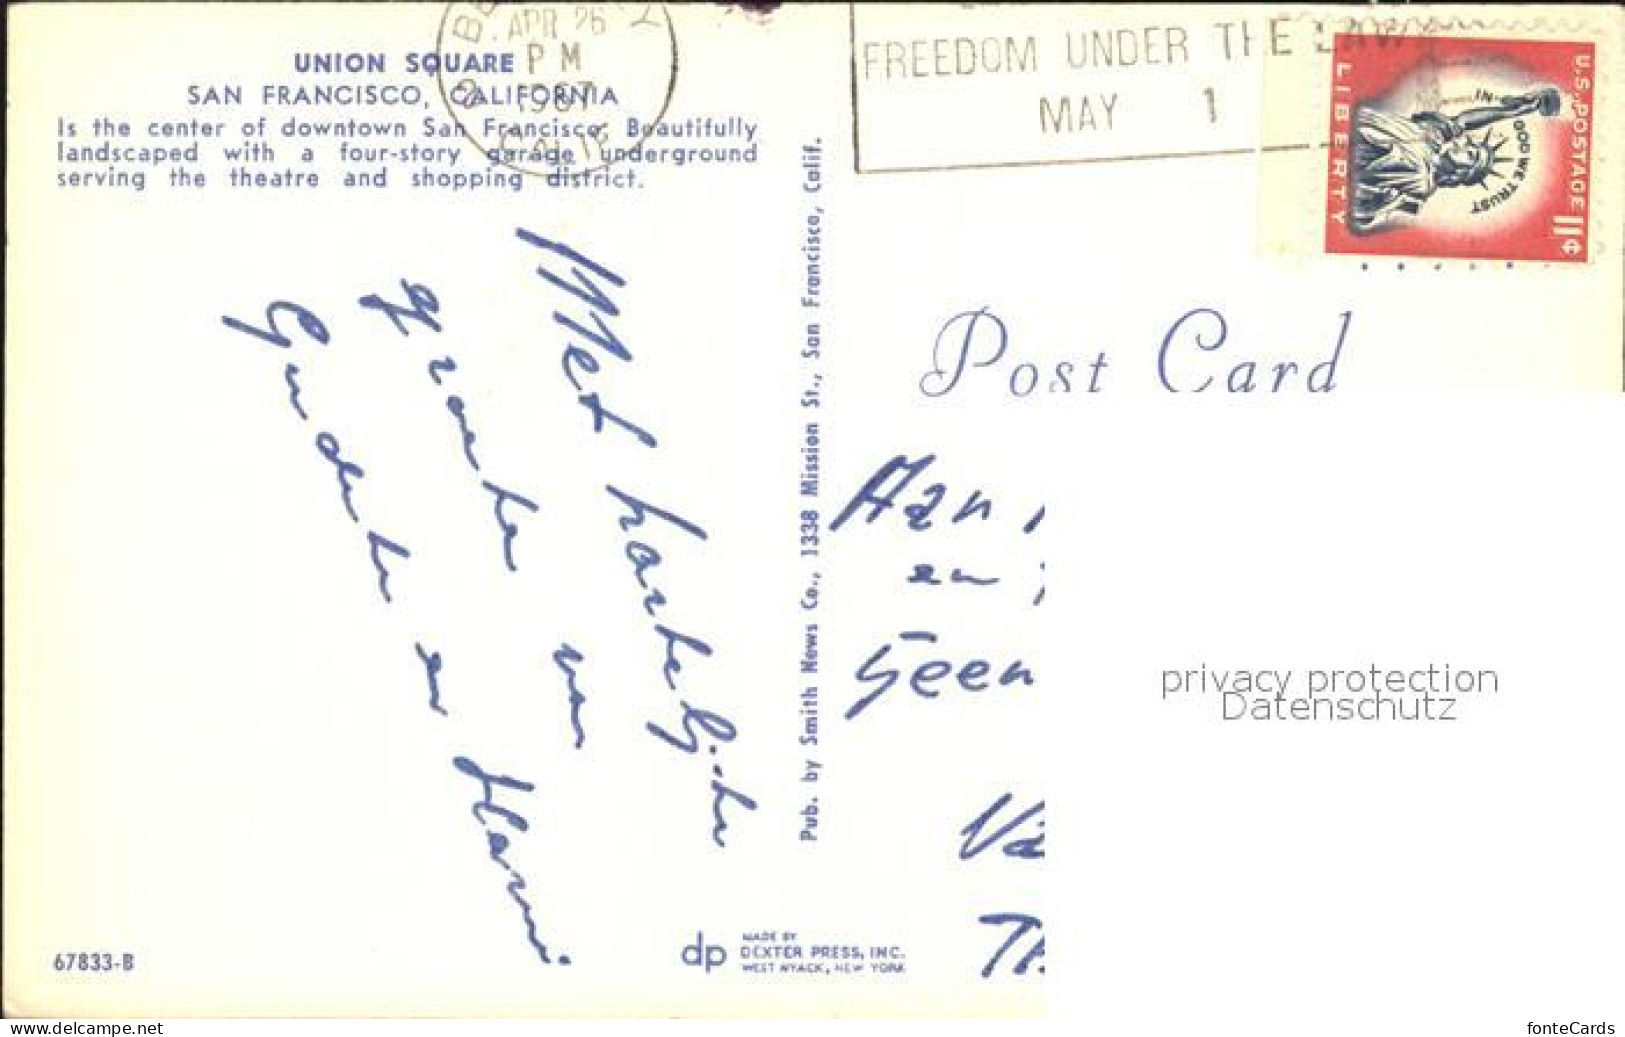 UNION SQUARE
SAN FRANCISCO, CALIFORNIA
Is the center of downtown San Francisco. Beautifully
landscaped with a four-story garage underground
serving the theatre and shopping district.
APR 26
PM
1967
FREEDOM UNDER THE LAW
MAY 1
U.S. POSTAGE 11¢
LIBERTY
IN GOD WE TRUST
Post Card
Met hartelijke
groeten van
en Hanni.
Pub. by Smith News Co., 1338 Mission St., San Francisco, Calif.
en
privacy protection
Datenschutz
67833-B
dp MADE BY
DEXTER PRESS, INC.
WEST NYACK, NEW YORK
www.delcampe.net
fonteCards